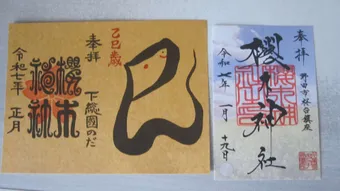 奉拝
乙巳歳
下総國のだ
櫻木
神社
令和七年 正月
奉拝
野田市桜台鎮座
櫻木神社
令和七年 一月 十九日